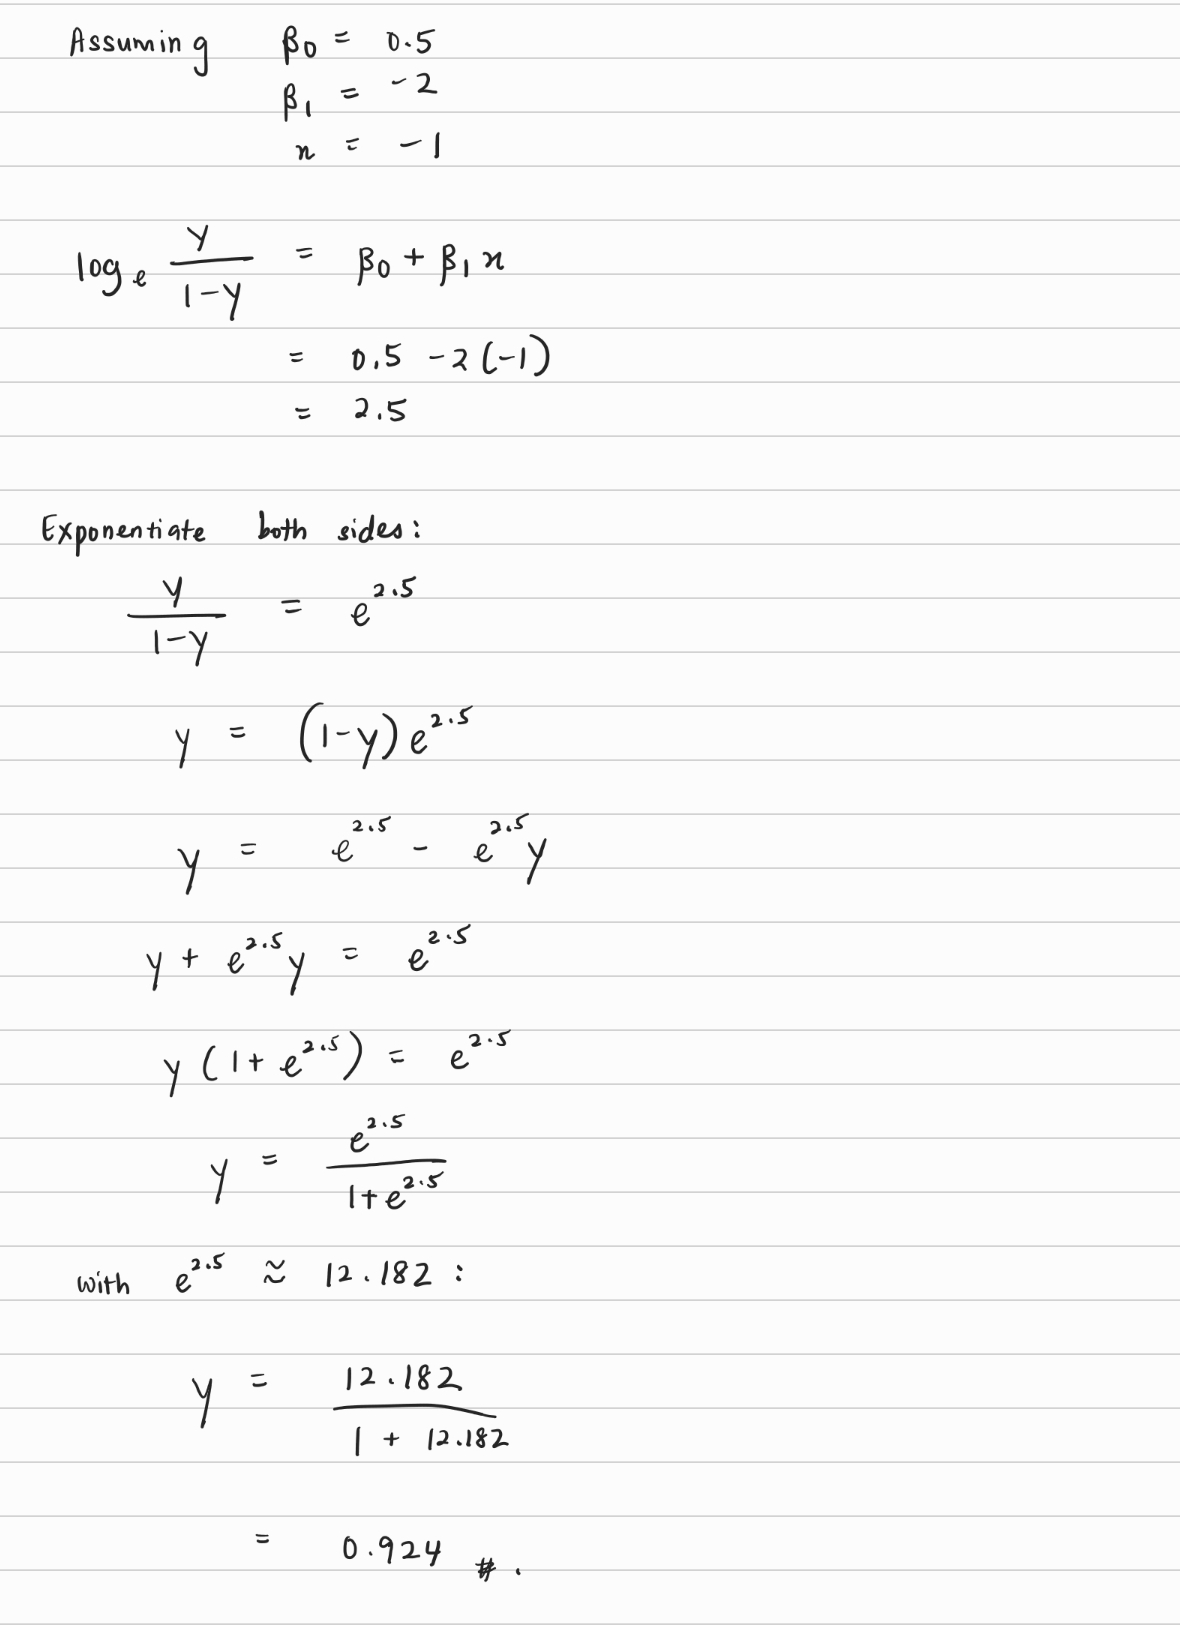 Assuming β₀ = 0.5
β₁ = -2
x = -1
logₑ y/(1-y) = β₀ + β₁x
= 0.5 - 2(-1)
= 2.5
Exponentiate both sides:
y/(1-y) = e^2.5
y = (1-y)e^2.5
y = e^2.5 - e^2.5 y
y + e^2.5 y = e^2.5
y(1 + e^2.5) = e^2.5
y = e^2.5/(1+e^2.5)
with e^2.5 ≈ 12.182 :
y = 12.182/(1 + 12.182)
= 0.924 #.